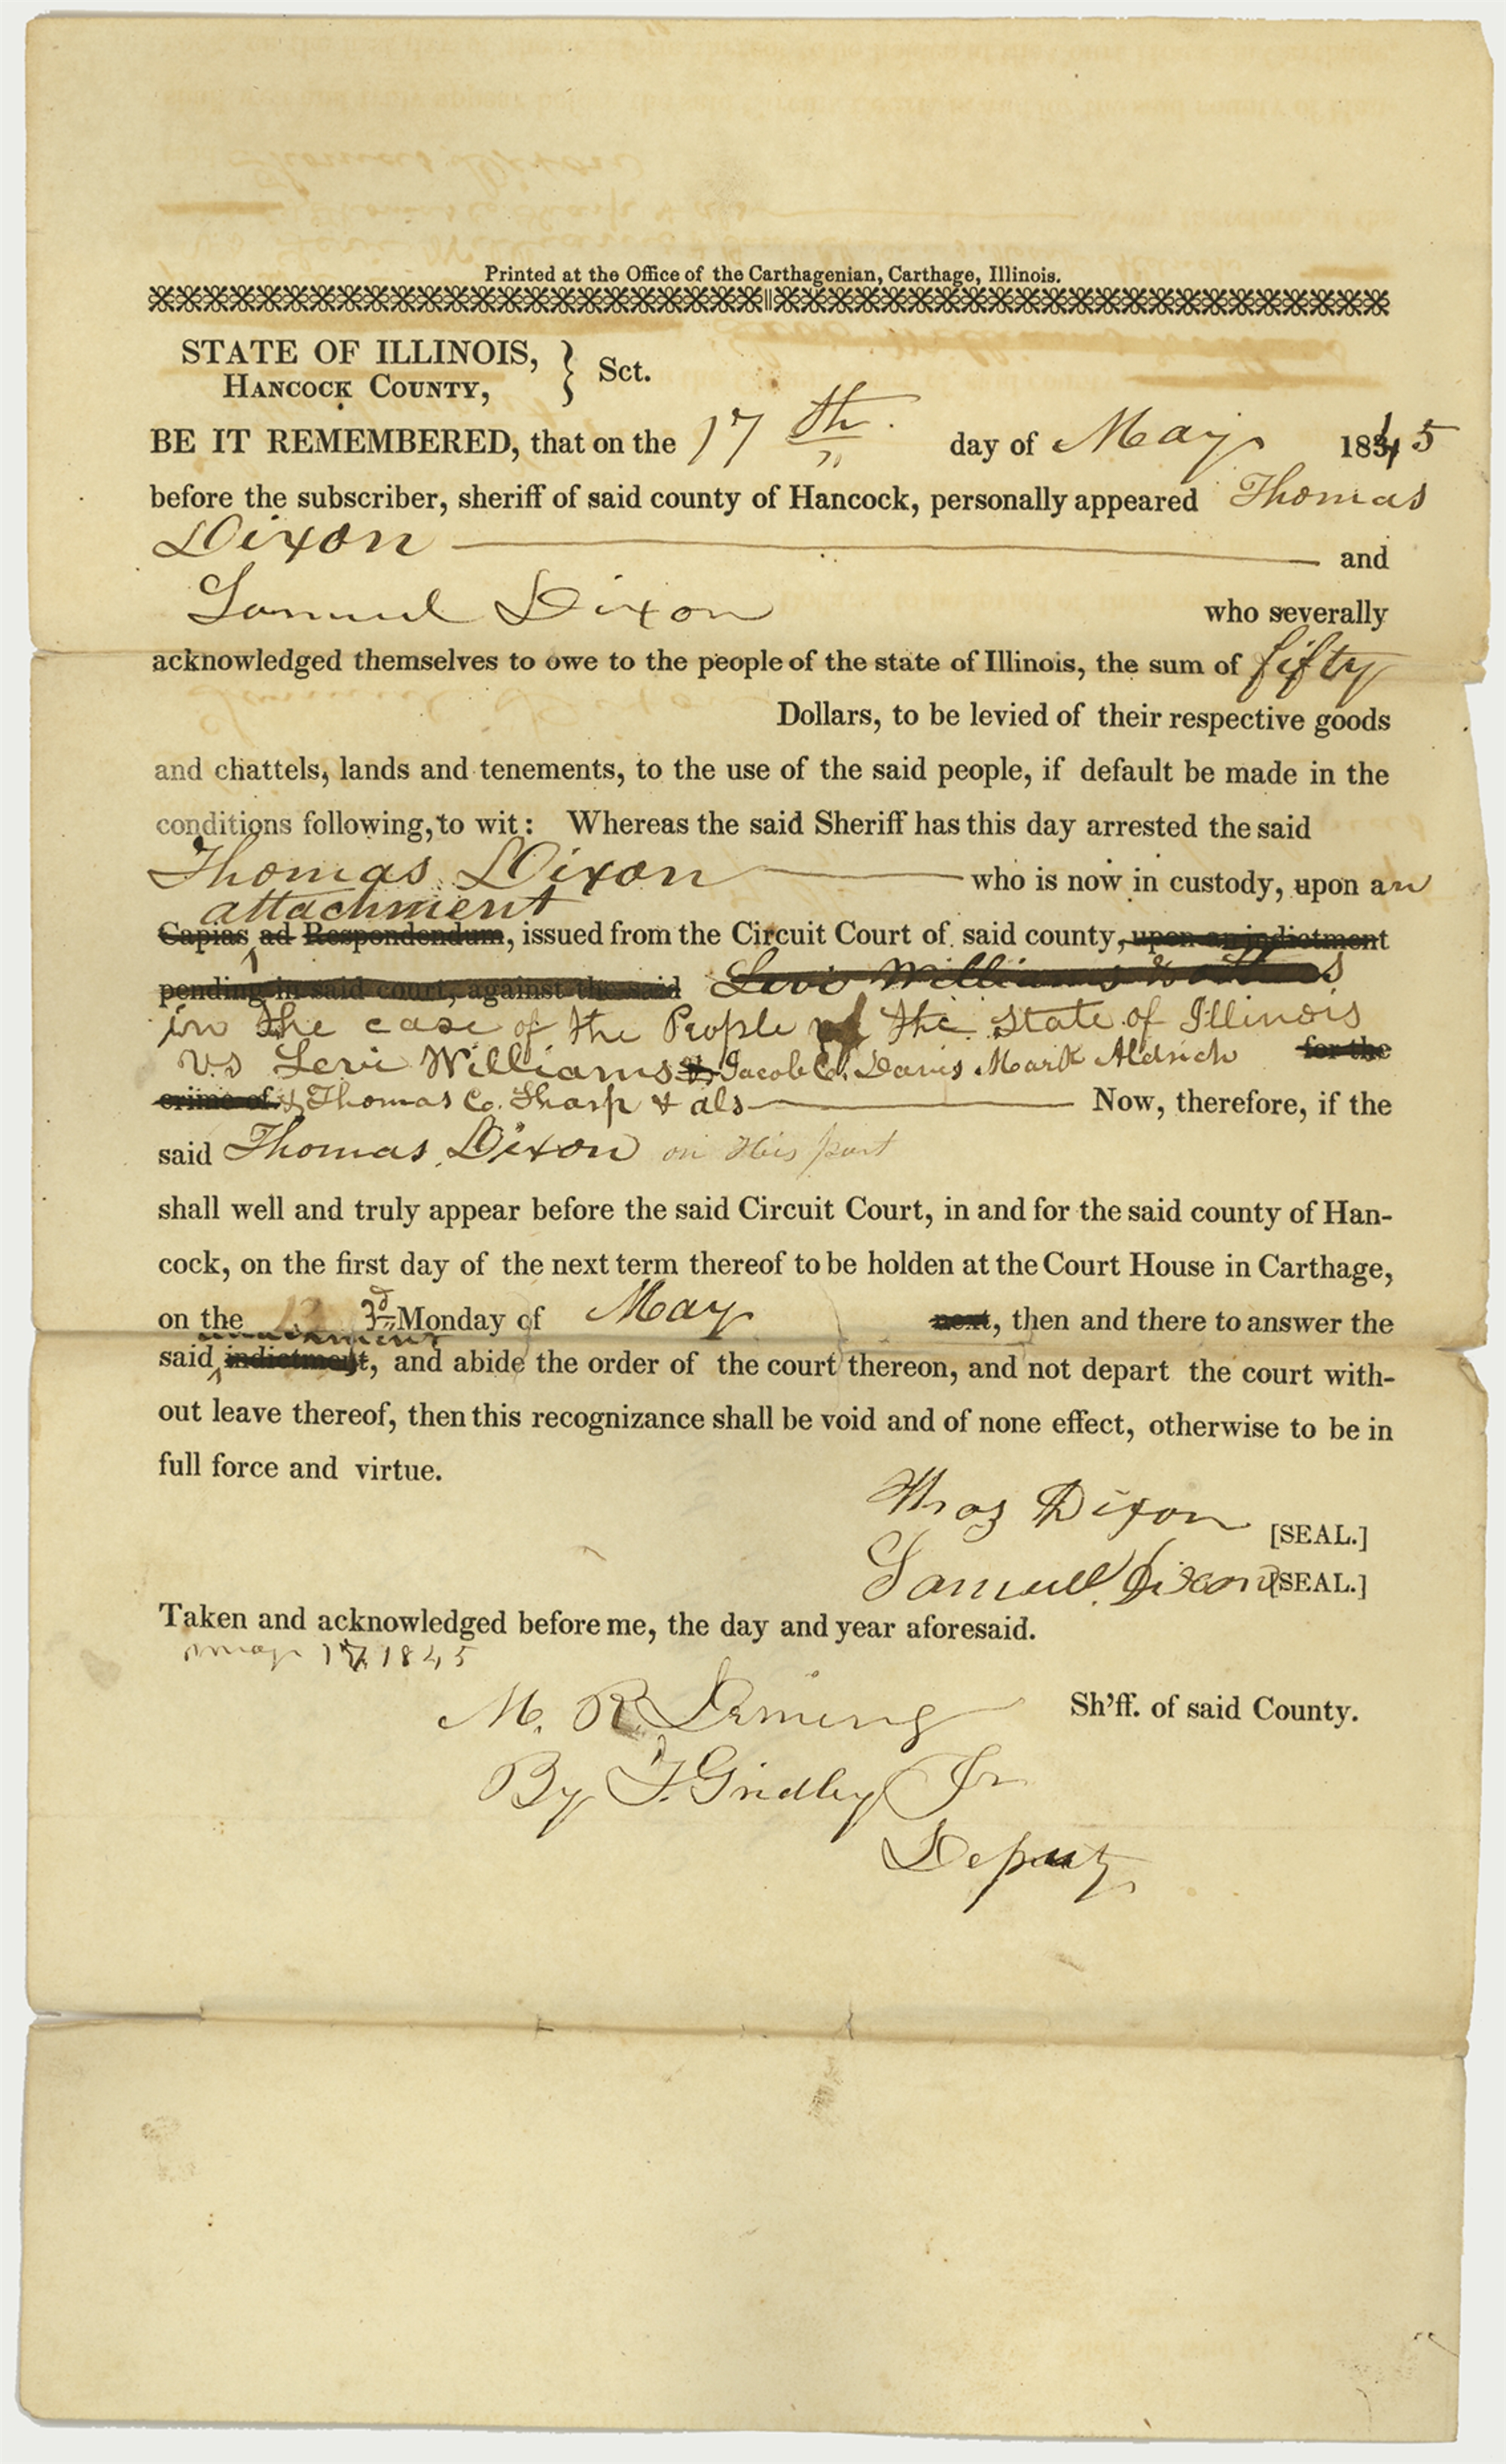 Printed at the Office of the Carthagenian, Carthage, Illinois.
STATE OF ILLINOIS,
HANCOCK COUNTY, } Sct.
BE IT REMEMBERED, that on the 17th day of May 1845
before the subscriber, sheriff of said county of Hancock, personally appeared Thomas
Dixon and
Samuel Dixon who severally
acknowledged themselves to owe to the people of the state of Illinois, the sum of fifty
Dollars, to be levied of their respective goods
and chattels, lands and tenements, to the use of the said people, if default be made in the
conditions following, to wit: Whereas the said Sheriff has this day arrested the said
Thomas Dixon who is now in custody, upon an
attachment
Capias ad Respondendum, issued from the Circuit Court of said county, upon an indictment
pending in said court, against the said Levi Williams &
in the case of the People of the State of Illinois
vs Levi Williams & Jacob C. Davis Mark Aldrich for the
crime of & Thomas C. Sharp & als Now, therefore, if the
said Thomas Dixon on His part
shall well and truly appear before the said Circuit Court, in and for the said county of Han-
cock, on the first day of the next term thereof to be holden at the Court House in Carthage,
on the 3d Monday of May next, then and there to answer the
attachment
said indictment, and abide the order of the court thereon, and not depart the court with-
out leave thereof, then this recognizance shall be void and of none effect, otherwise to be in
full force and virtue.
Thos Dixon [SEAL.]
Samuel Dixon [SEAL.]
Taken and acknowledged before me, the day and year aforesaid.
may 17 1845
M. R. Deming Sh'ff. of said County.
By F. Gridley Jr
Deputy